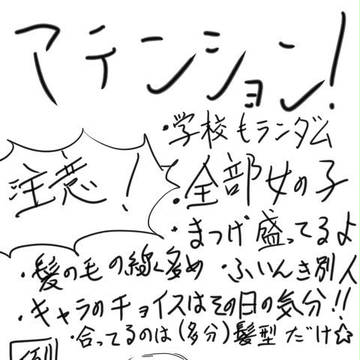 アテンション!
・学校もランダム
注意!
・全部女の子
・まつげ盛ってるよ
・髪の毛の線多め ・ふいんき別人
・キャラのチョイスはその日の気分!!
・合ってるのは(多分)髪型だけ☆
例